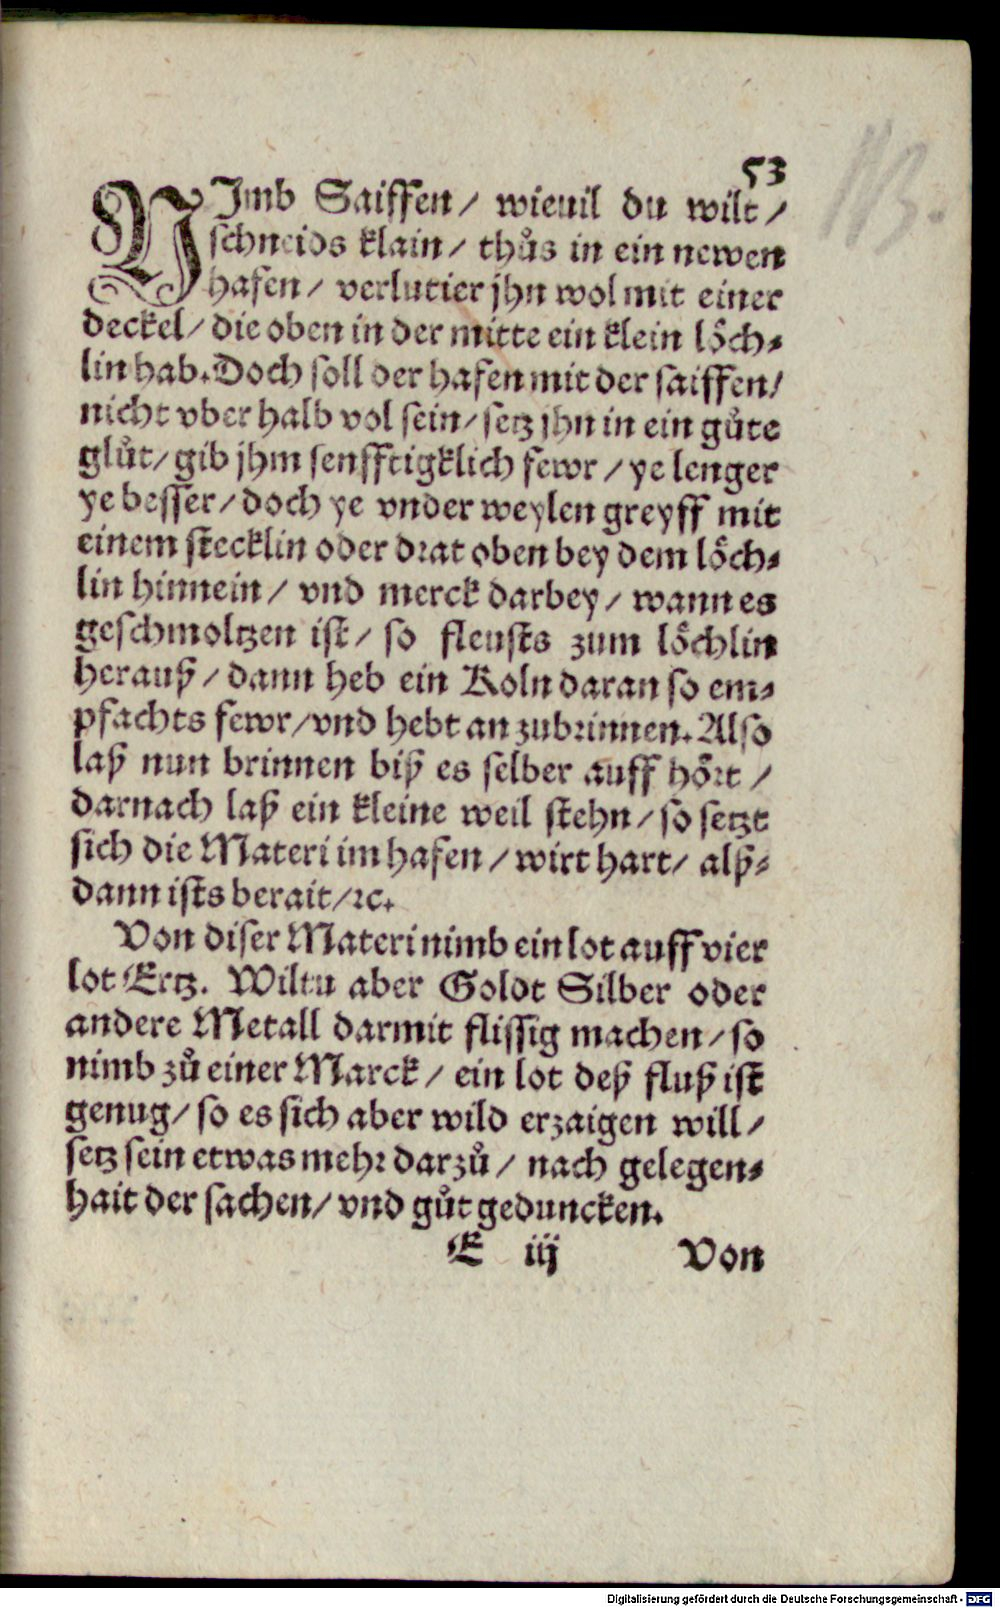 53
NImb Saiffen / wieuil du wilt /
schneids klain / thůs in ein newen
hafen / verlutier jhn wol mit einer
deckel / die oben in der mitte ein klein löch⸗
lin hab. Doch soll der hafen mit der saiffen /
nicht vber halb vol sein / setz jhn in ein gůte
glůt / gib jhm senfftigklich fewr / ye lenger
ye besser / doch ye vnder weylen greyff mit
einem stecklin oder drat oben bey dem löch⸗
lin hinnein / vnd merck darbey / wann es
geschmoltzen ist / so fleusts zum löchlin
herauß / dann heb ein Koln daran so em⸗
pfachts fewr / vnd hebt an zubrinnen. Also
laß nun brinnen biß es selber auff hört /
darnach laß ein kleine weil stehn / so setzt
sich die Materi im hafen / wirt hart / alß⸗
dann ists berait / ꝛc.
Von diser Materi nimb ein lot auff vier
lot Ertz. Wiltu aber Goldt Silber oder
andere Metall darmit flissig machen / so
nimb zů einer Marck / ein lot deß fluß ist
genug / so es sich aber wild erzaigen will /
setz sein etwas mehr darzů / nach gelegen⸗
hait der sachen / vnd gůt geduncken.
E iij Von
Digitalisierung gefördert durch die Deutsche Forschungsgemeinschaft - DFG